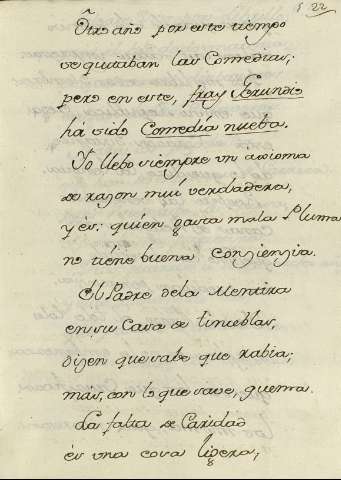 22
Otro año por este tiempo
se quitaban las Comedias;
pero en este, fray Gerundio
há sido Comedia nueba.
Yo llebo siempre un áxioma
de razon mui verdadera,
y és: quien gasta mala Pluma
no tiene buena conzienzia.
El Padre dela Mentira
en su Casa de tinieblas,
dizen que sabe que rabia;
mas, con lo que save, quema.
La falta de Caridad
és una cosa ligera,